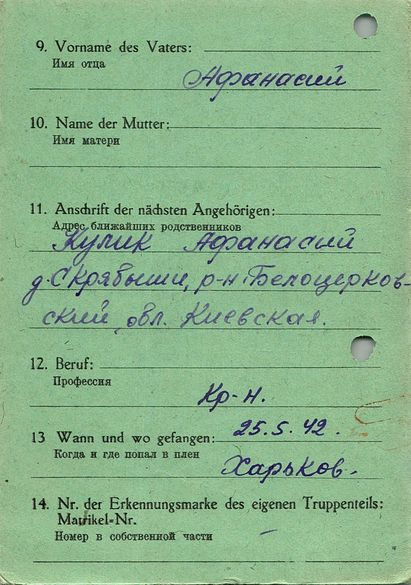 9. Vorname des Vaters:
Имя отца
Афанасий
10. Name der Mutter:
Имя матери
11. Anschrift der nächsten Angehörigen:
Адрес ближайших родственников
Кулик Афанасий
д. Скрябыши, р-н Белоцерков-
ский, обл. Киевская.
12. Beruf:
Профессия
Кр-н.
13 Wann und wo gefangen: 25.5.42.
Когда и где попал в плен
Харьков.
14. Nr. der Erkennungsmarke des eigenen Truppenteils:
Matrikel-Nr.
Номер в собственной части